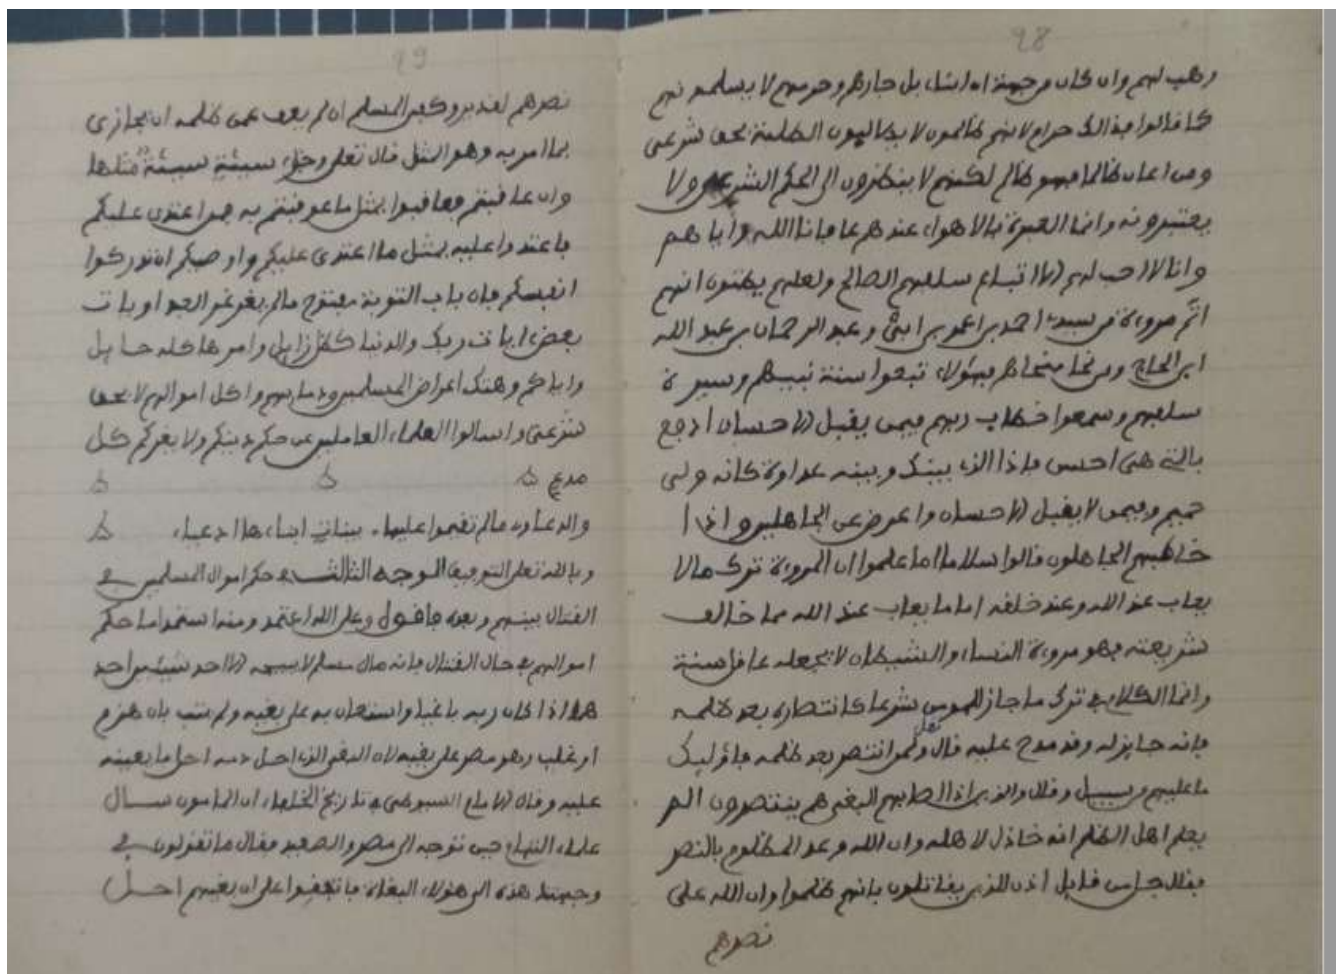 98
وهب لهم وان كان من جهة اه ابتداء بل جارهم وحرمهم لا يسلمونهم
كما قالوا وذالك حرام لانهم ظالمون لا يطالبون الظلمة بحق شرعي
ومن اعان ظالما فهو ظالم لكنهم لا ينظرون الى الحكم الشرعي ولا
يعتبرونه وانما العبرة بالاهواء عندهم عافانا الله واياهم
وانا لا احب لهم الا اتباع سلفهم الصالح ولعلهم يظنون انهم
اتم مروءة من سيد احمد بن اعمر بن وعبد الرحمان بن عبد الله
ابن الحاج ومن نحا منحاهم فهؤلاء تبعوا سنة نبيهم وسيرة
سلفهم وسمعوا خطاب ربهم فيمن يقبل الاحسان ادفع
بالتي هي احسن فاذا الذي بينك وبينه عداوة كانه ولي
حميم وفيمن لا يقبل الاحسان واعرض عن الجاهلين واذا
خاطبهم الجاهلون قالوا سلاما اما علموا ان المروءة ترك ما لا
يعاب عند الله وعند خلفه اما ما يعاب عند الله مما خالف
شريعته فهو مروءة النساء والشيطان لا يجعله عاقل سنة
وانما الكلام في ترك ما جاز للمومن شرعا كانتصاره بعد ظلمه
فانه جايز له وقد مدح عليه قال تعلى ولمن انتصر بعد ظلمه فاولئك
ما عليهم من سبيل وقال والذين اذا اصابهم البغي هم ينتصرون الم
يعلم اهل الظلم انه خاذل لاهله وان الله وعد المظلوم بالنصر
فقال جل من قايل اذن للذين يقاتلون بانهم ظلموا وان الله على
نصرهم
99
نصرهم لقدير وكفى المسلم ان لم يعف عمن ظلمه ان يجازى
بما امر به وهو المثل قال تعلى وجزاء سيئة سيئة مثلها
وان عاقبتم فعاقبوا بمثل ما عوقبتم به فمن اعتدى عليكم
فاعتدوا عليه بمثل ما اعتدى عليكم واوصيكم ان تدركوا
انفسكم فان باب التوبة مفتوح ما لم يغرغر العبد او يات
بعض ايات ربك والدنيا كظل زايل وامرها كله حايل
واياكم وهتك اعراض المسلمين ودمايهم واكل اموالهم لا بحق
شرعي واسالوا العلماء العاملين عن حكم دينكم ولا يغركم كل
مدع
والدعاوى ما لم تقيموا عليها بينات ابناءها ادعياء
وبالله تعلى التوفيق الوجه الثالث في حكم اموال المسلمين في
القتال بينهم وبعده فاقول وعلى الله اعتمد ومنه استمد اما حكم
اموالهم في حال القتال فانه مال مسلم لا يبيحه الا احد شيئين احد
هما اذا كان ربه باغيا واستعان به على بغيه ولم يتب بان هزم
او غلب وهو مصر على بغيه لان البغي الذي احل دمه احل ما يعينه
عليه وقال الامام السيوطي في تاريخ الخلفاء ان المامون سال
علماء الفقهاء حين توجه الى مصر والصعيد فقال ما تقولون في
وجهتنا هذه الى هؤلاء البغاة فاتفقوا على ان بغيهم احل